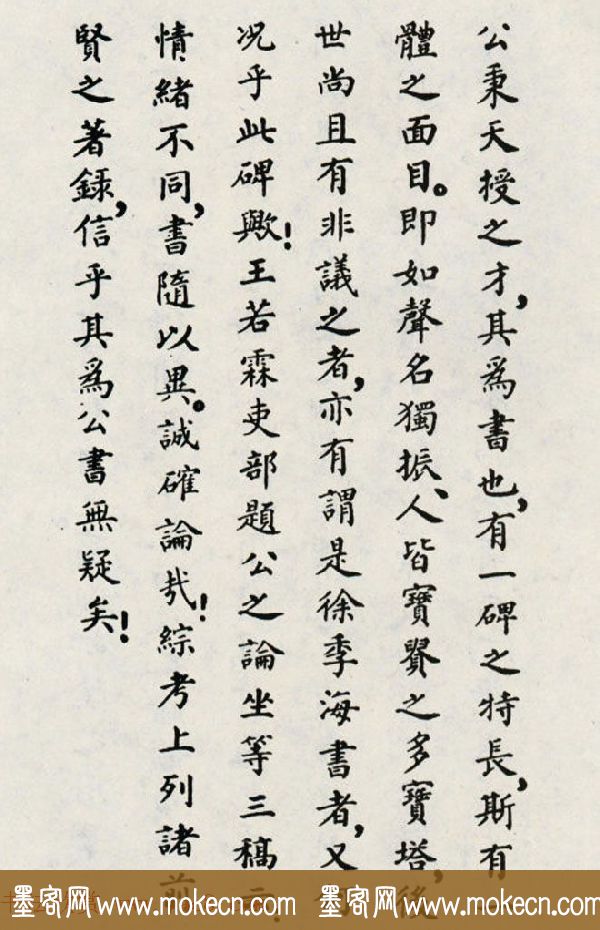 公秉天授之才，其爲書也，有一碑之特長，斯有一
體之面目。即如聲名獨振、人皆寶譽之多寶塔，後
世尚且有非議之者，亦有謂是徐季海書者，又
況乎此碑歟！王若霖吏部題公之論坐等三稿云：
情緒不同，書隨以異。誠確論哉！綜考上列諸前
賢之著録，信乎其爲公書無疑矣！
墨客网 www.mokecn.com 墨客网 www.mokecn.com